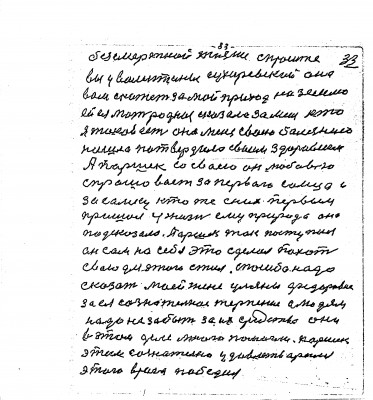 -33-
33
безсмертной жизни спросите
вы у валентины сухаревской она
вам скажет за мой приход на землю
ей ея матродная сказала за меня кто
я таков есть она меня свою болезнею
нашла потвердила своим здоровием
А паршек со своею он любовью
спрашовает за первого самца и
за самку кто же с них первым
пришол у жизнь ему природа она
подсказала. Паршек так поступил
он сам на себя это сделал
свого для этого стил. спосибо надо
сказать моей жене ульяни федоровне
за ея сознателное терпение а людям
надо не забыть за их средство они
в этом деле много помогли. паршек
этим сознателно удовлетворил
этого врага победил